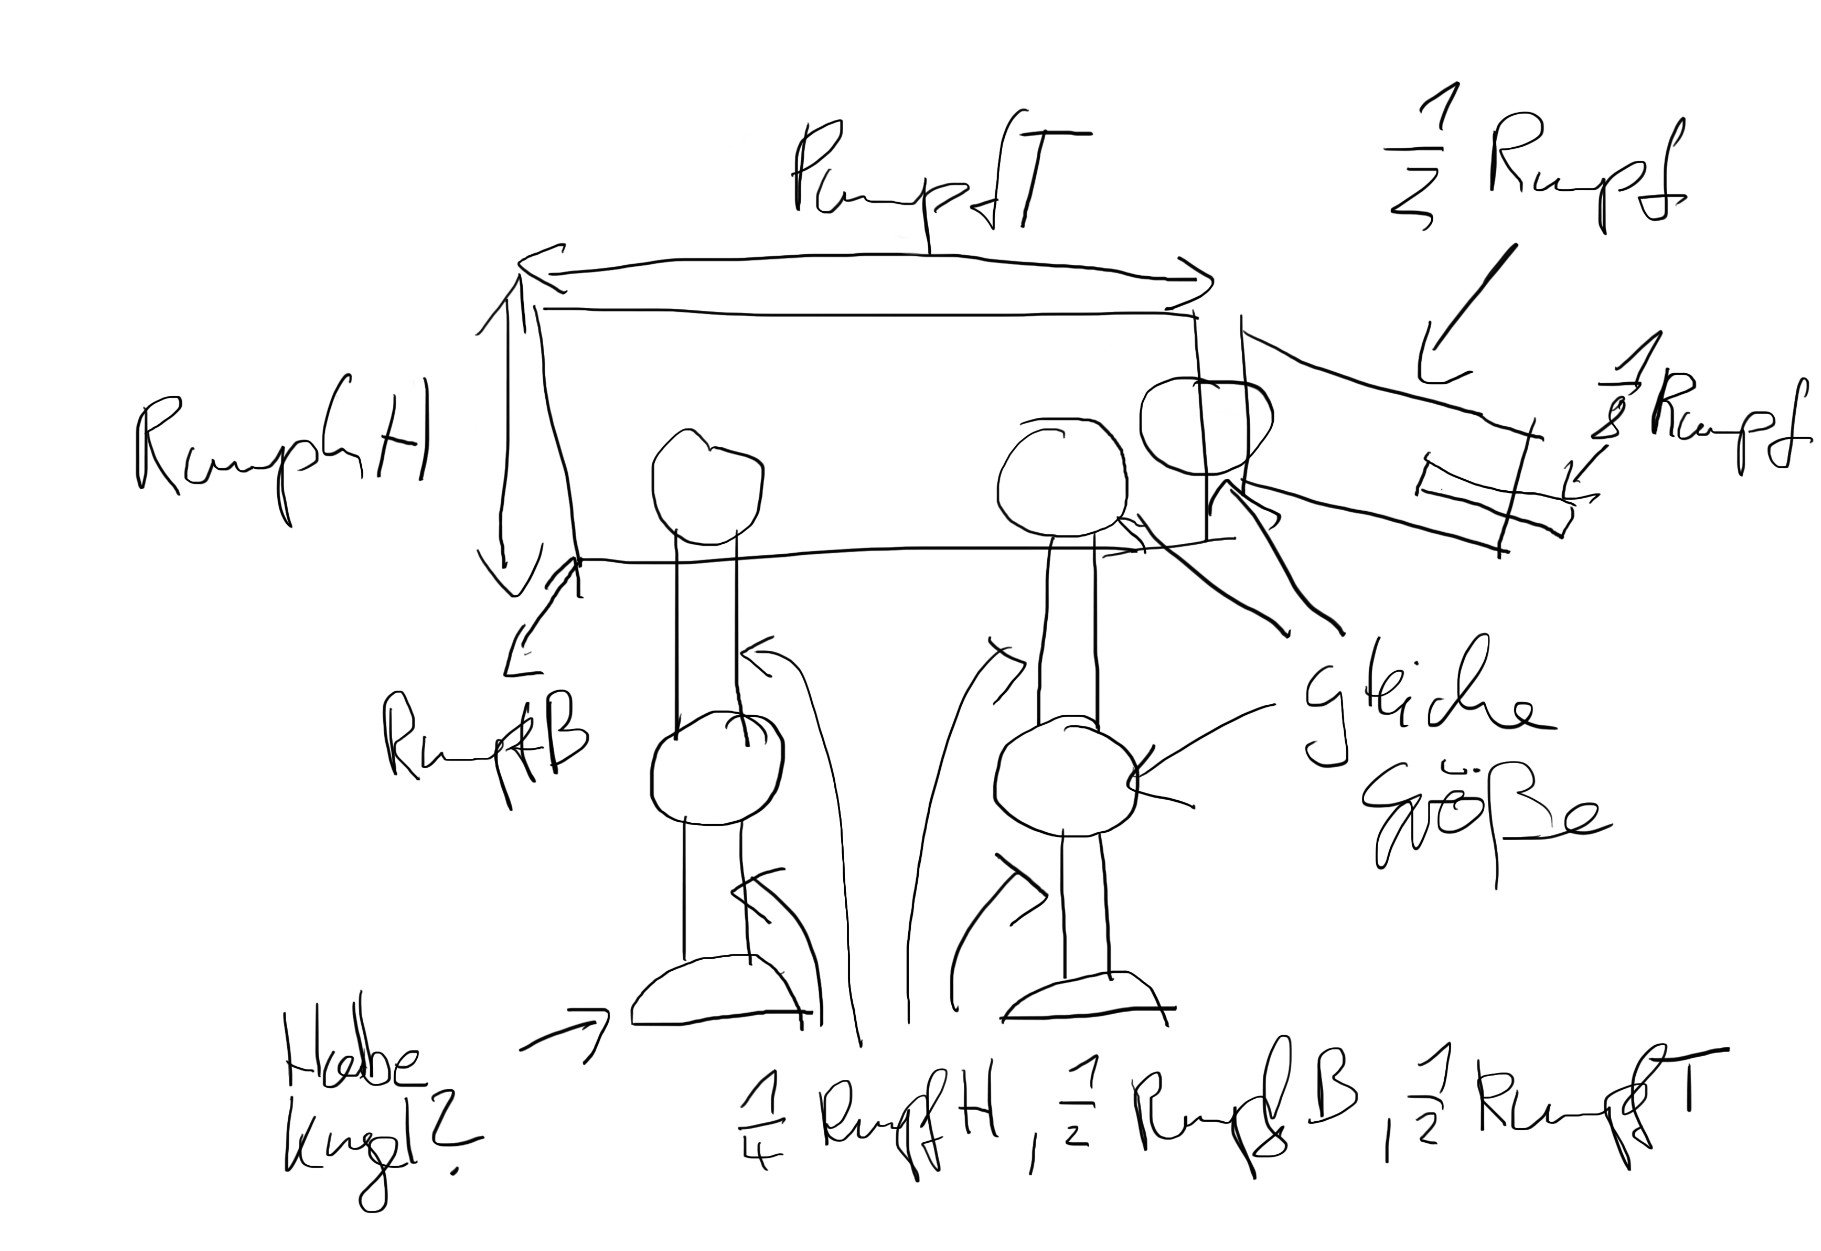 RumpfT
1/2 Rumpf
1/8 Rumpf
RumpfH
RumpfB
gleiche
Größe
Halbe
Kugel?
1/4 RumpfH, 1/2 RumpfB, 1/2 RumpfT